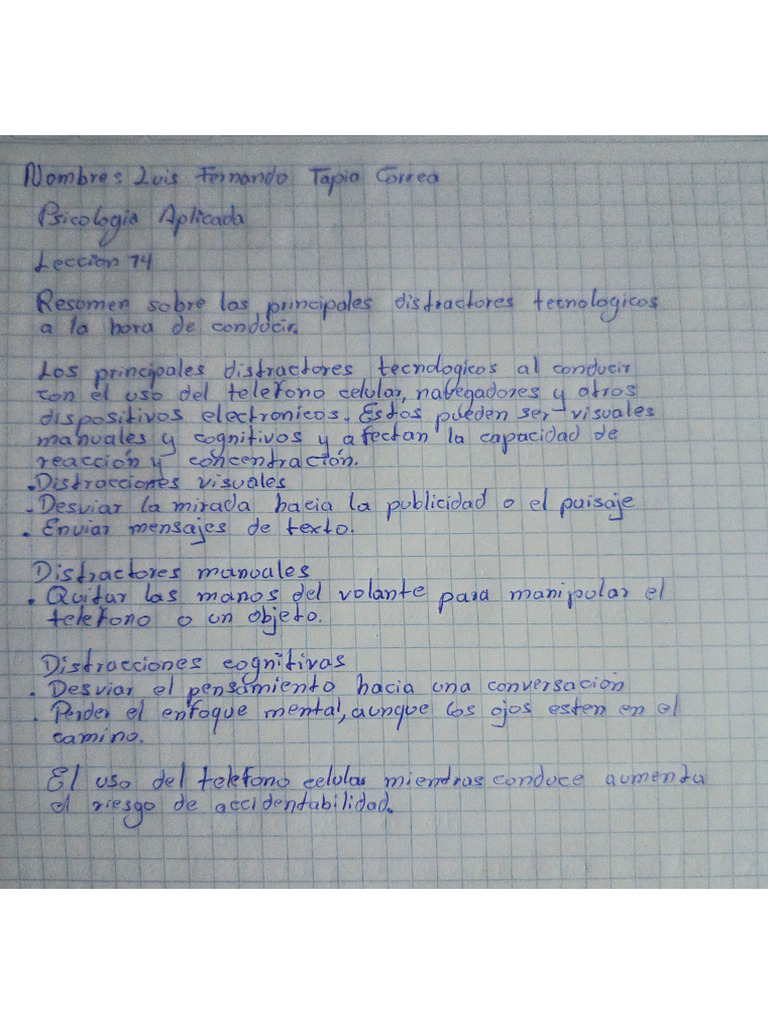 Nombres Luis Fernando Tapia Correa
Psicologia Aplicada
Leccion 14
Resomen sobre los principales distractores tecnologicos
a la hora de conducir.
Los principales distractores tecnologicos al conducir
son el uso del telefono celular, navegadores y otros
dispositivos electronicos. Estos pueden ser visuales
manuales y cognitivos y afectan la capacidad de
reacción y concentración.
. Distracciones visuales
- Desviar la mirada hacia la publicidad o el paisaje
. Enviar mensajes de texto.
Distractores manuales
. Quitar las manos del volante para manipular el
telefono o un objeto.
Distracciones cognitivas
. Desviar el pensamiento hacia una conversación
. Perder el enfoque mental, aunque los ojos esten en el
camino.
El uso del telefono celular mientras conduce aumenta
el riesgo de accidentabilidad.